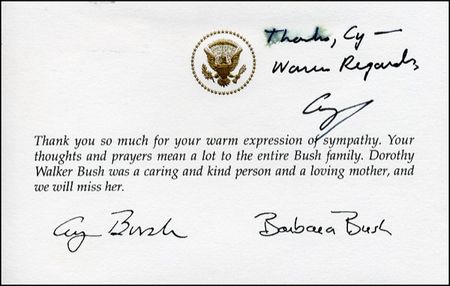 Thanks, Cy —
Warm Regards,
Thank you so much for your warm expression of sympathy. Your
thoughts and prayers mean a lot to the entire Bush family. Dorothy
Walker Bush was a caring and kind person and a loving mother, and
we will miss her.
Bush Barbara Bush